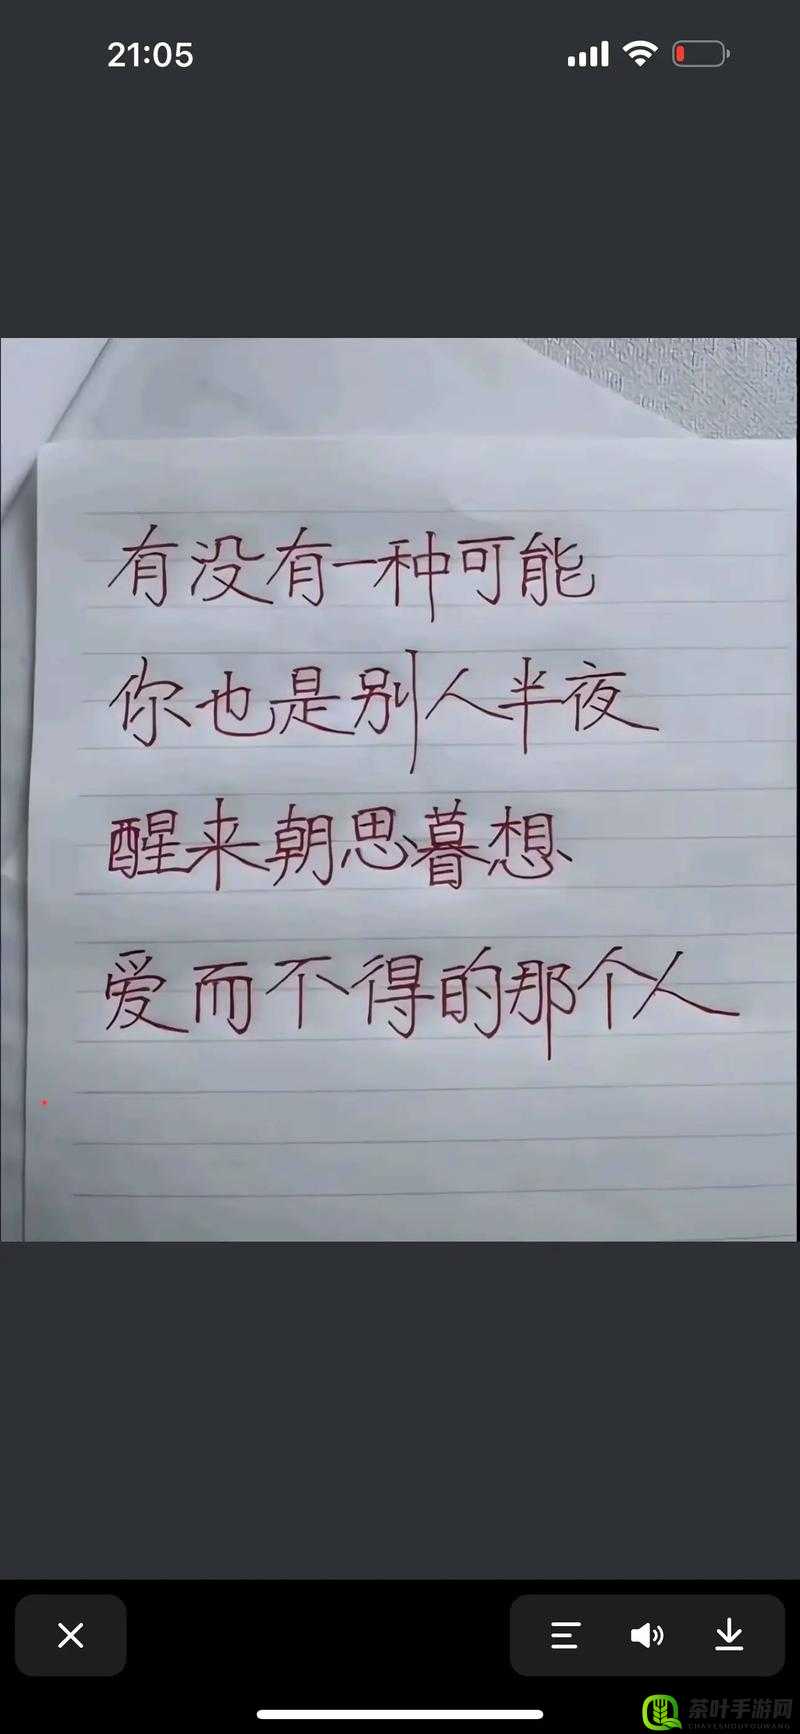 21:05
有没有一种可能
你也是别人半夜
醒来朝思暮想
爱而不得的那个人
茶叶手游网
CHAYESHOUYOUWANG